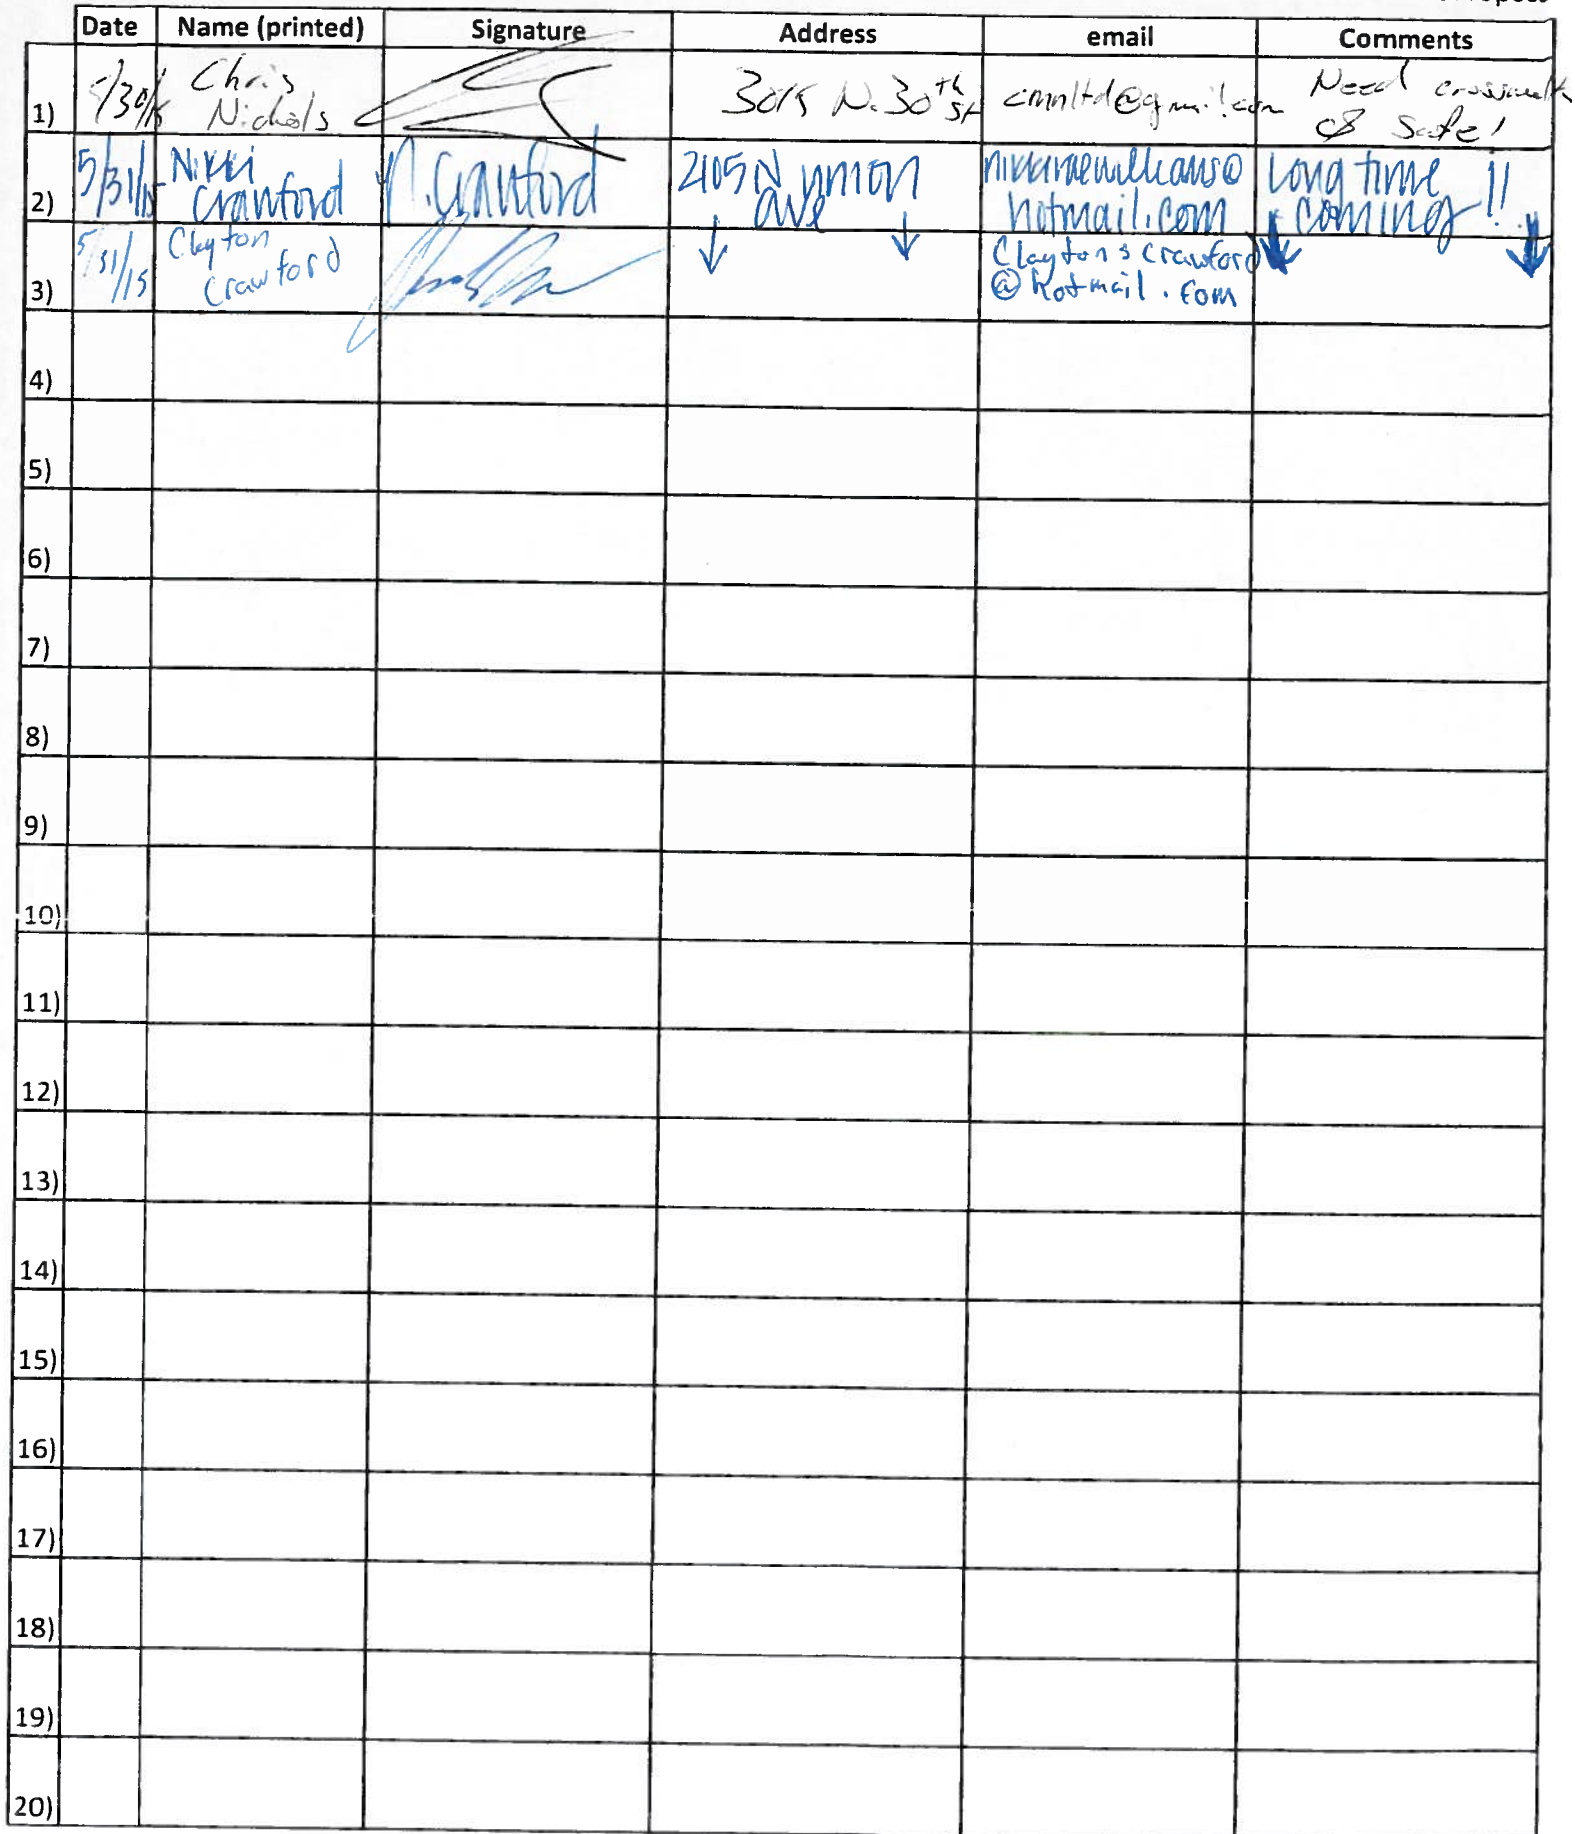 Date Name (printed) Signature Address email Comments
1) 5/30/15 Chris Nichols 3015 N. 30th St cmnltd@gmail.com Need crosswalk & safe!
2) 5/31/15 Nikki Crawford N. Crawford 2105 N Union Ave nikkiraewilliams@hotmail.com Long time coming!!
3) 5/31/15 Clayton Crawford ↓ ↓ Claytonscrawford@hotmail.com ↓ ↓
4)
5)
6)
7)
8)
9)
10)
11)
12)
13)
14)
15)
16)
17)
18)
19)
20)